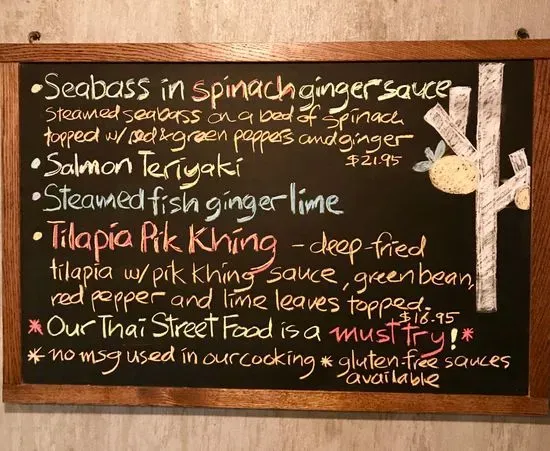 • Seabass in spinach ginger sauce
Steamed seabass on a bed of spinach
topped w/ red & green peppers and ginger
$21.95
• Salmon Teriyaki
• Steamed fish ginger lime
• Tilapia Pik Khing - deep fried
tilapia w/ pik khing sauce, green bean,
red pepper and lime leaves topped.
$16.95
* Our Thai Street Food is a must try! *
* no msg used in our cooking * gluten-free sauces
available